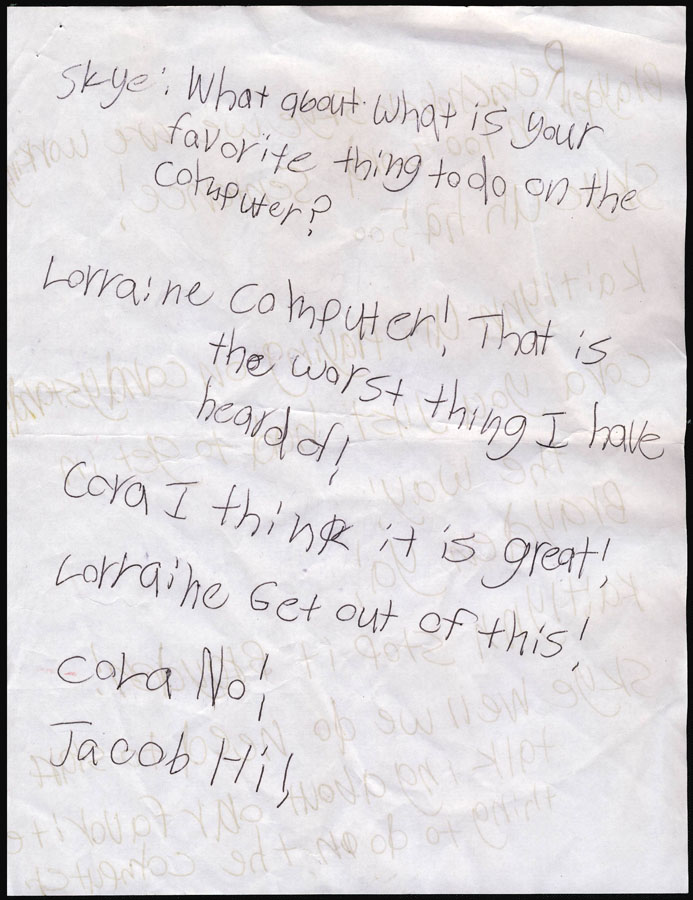 Skye: What about what is your
favorite thing to do on the
computer?
Lorraine Computer! That is
the worst thing I have
heard of!
Cora I think it is great!
Lorraine Get out of this!
Cora No!
Jacob Hi!